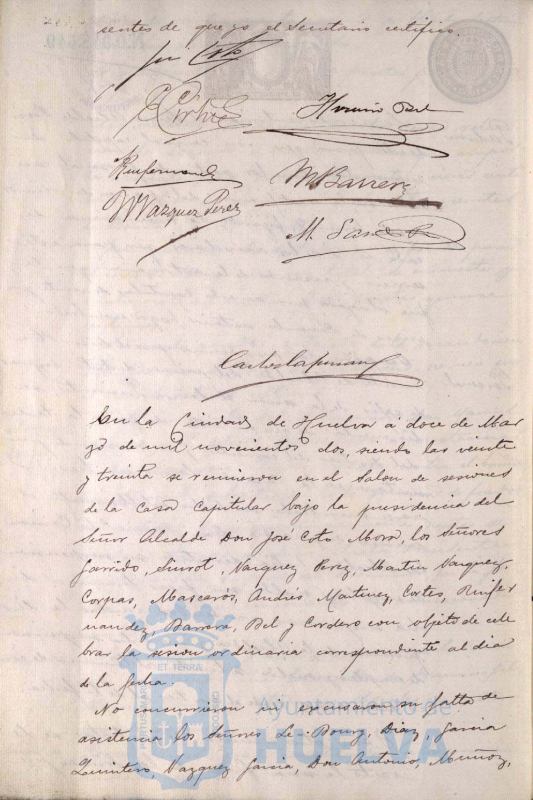 sentes de que yo el Secretario certifico.
José Coto
E Cortés
Horacio Bel
Ruifernandez
M Barrera
M Vazquez Perez
M. Garrido
En la Ciudad de Huelva á doce de Mar
zo de mil novecientos dos, siendo las veinte
y treinta se reunieron en el Salon de sesiones
de la casa capitular bajo la presidencia del
Señor Alcalde Don José Coto Mora, los Señores
Garrido, Siurot, Vazquez Perez, Martin Vazquez,
Corpas, Mascarós, Andrés Martinez, Cortes, Ruifer
nandez, Barrera, Bel y Cordero con objeto de cele
brar la sesion ordinaria correspondiente al dia
de la fecha.
No concurrieron ni excusaron su falta de
asistencia los Señores Le-Bourg, Diaz, Garcia
Quintero, Vazquez Garcia, Don Antonio, Muñoz,
PORTUS MARIS
ET TERRÆ
CUSTODIO
Ayuntamiento de
HUELVA